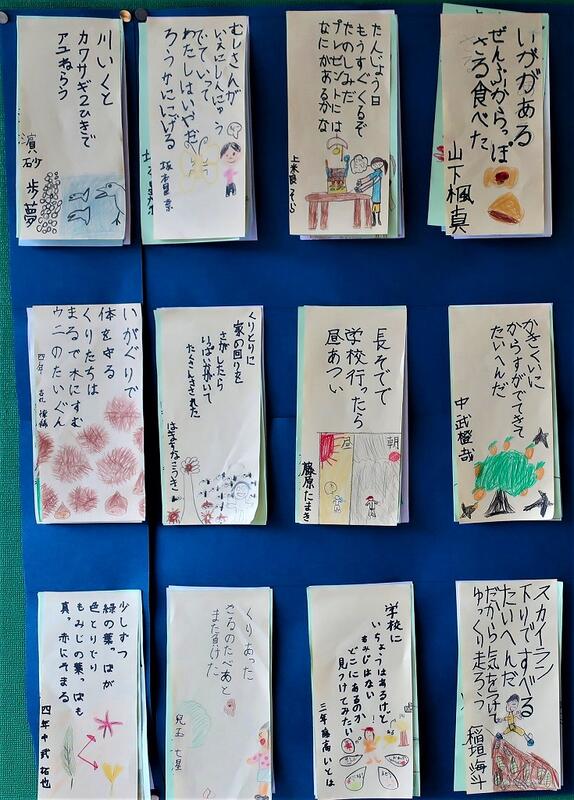 いががある
ぜんぶからっぽ
さる食べた
山下楓真
たんじょう日
もうすぐくるぞ
たのしみだ
プレゼントには
なにがあるかな
上米良そら
むしさんが
いえにしんにゅう
でていって
わたしはいやだ
ろうかににげる
川いくと
カワサギ2ひきで
アユねらう
濵砂歩夢
かきくいに
からすがでてきて
たいへんだ
中武橙哉
長そでで
学校行ったら
昼あつい
昼
朝
藤原たまき
くりとりに
家の回りを
さがしたら
いっぱいおいて
たくさんさされた
いがぐりで
体を守る
くりたちは
まるで木にすむ
ウニのたいぐん
スカイラン
下りですべる
たいへんだ
だから気をつけ
ゆっくり走ろう
稲垣海斗
学校に
いちょうはあるけど
もみじはない
どこにあるのか
見つけてみたい
くりあった
さるのたべあと
また負けた
児玉七星
少しずつ
緑の葉っぱが
色とりどり
もみじの葉っぱも
真っ赤にそまる
四年中武拓也